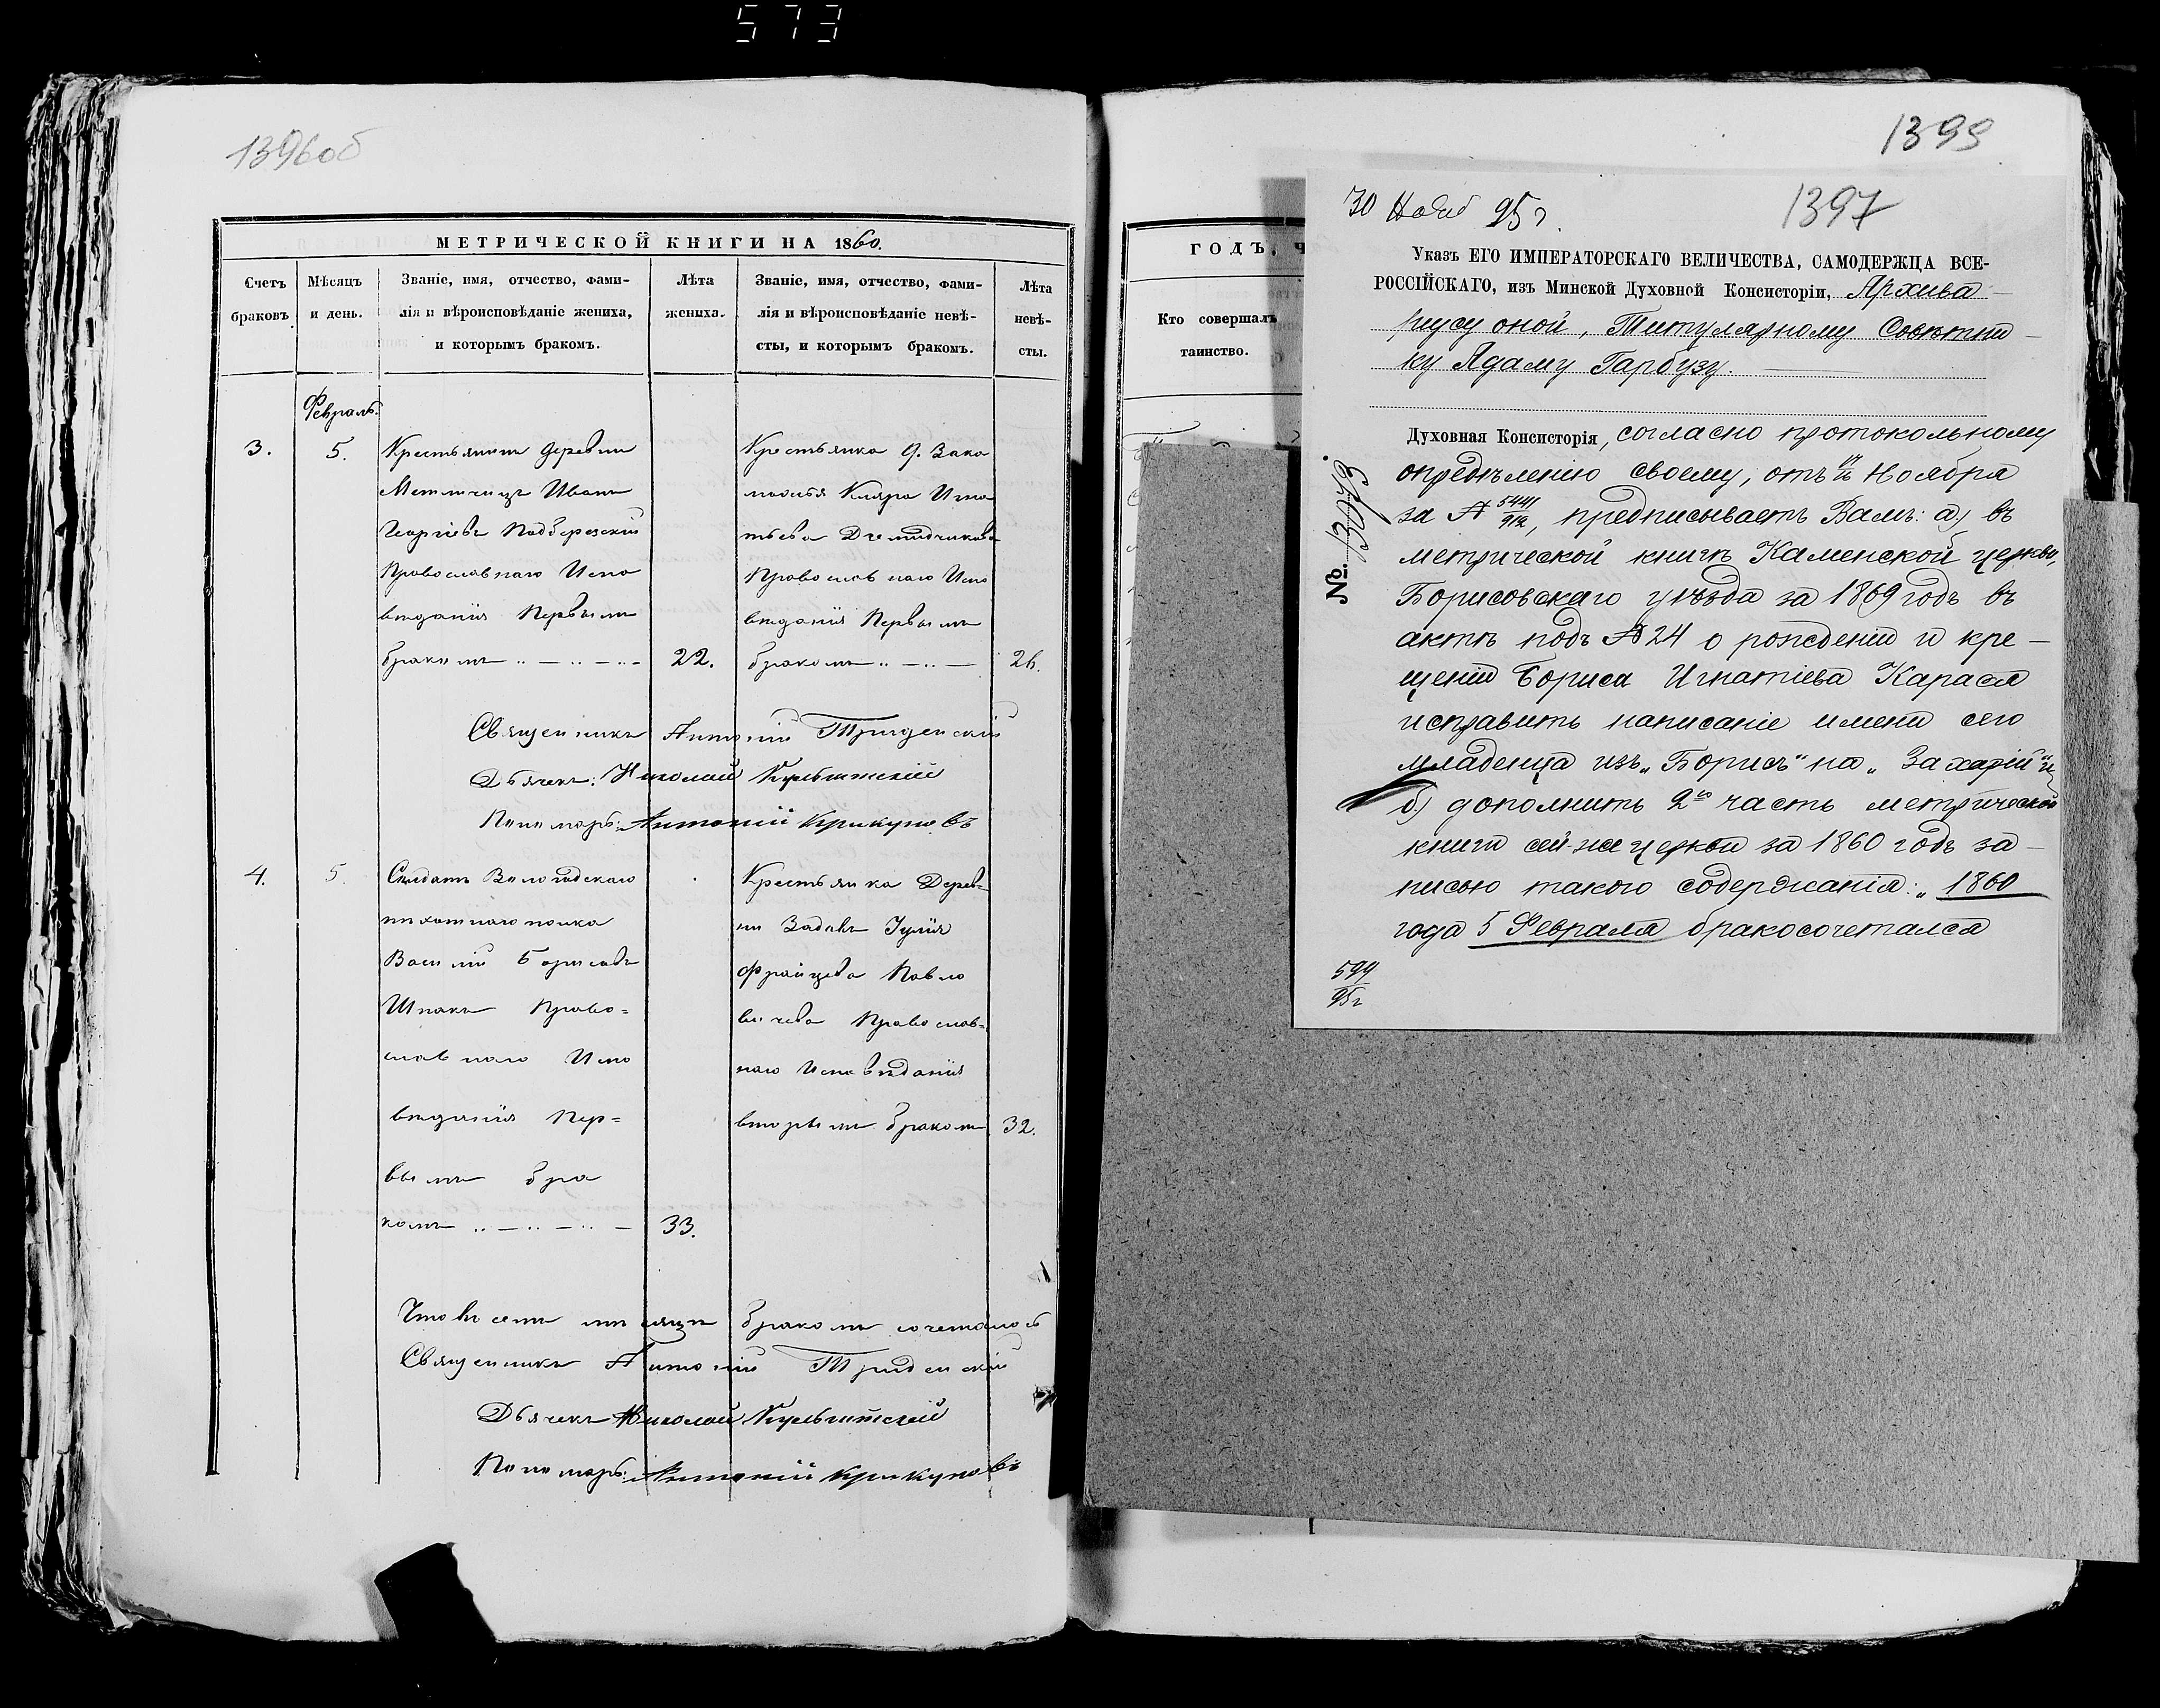 573
1396об
МЕТРИЧЕСКОЙ КНИГИ НА 1860.
Счетъ браковъ
Мѣсяцъ и день.
Званіе, имя, отчество, фами-
лія и вѣроисповѣданіе жениха,
и которымъ бракомъ.
Лѣта жениха.
Званіе, имя, отчество, фами-
лія и вѣроисповѣданіе невѣ-
сты, и которымъ бракомъ.
Лѣта невѣ-
сты.
Февраль.
3.
5.
Крестьянинъ деревни
Метличицъ Иванъ
Георгіевъ Подберезскій
Православнаго Испо
вѣданія Первымъ
бракомъ
22.
Крестьянка д. Зако
Клара Игна
тьева
Православнаго Испо
вѣданія Первымъ
бракомъ
26.
Священникъ Антоній
Дьячекъ: Николай
Пономарь: Антоній Крикуновъ
4.
5.
Солдатъ Вологодскаго
пѣхотнаго полка
Василій Борисовъ
Шпакъ Право=
славнаго Испо
вѣданія Пер=
вымъ бра
комъ
33.
Крестьянка Дерев-
ни Іулія
Францева Павло
вичева Православ=
наго Исповѣданія
вторымъ бракомъ
32.
Что въ семъ мѣсяцѣ бракомъ сочеталось
Священникъ Антоній
Дьячекъ Николай
Пономарь: Антоній Крикуновъ
ГОДЪ, Ч
Кто совершалъ
таинство.
1399
30 Нояб 95 г.
1397
Указъ ЕГО ИМПЕРАТОРСКАГО ВЕЛИЧЕСТВА, САМОДЕРЖЦА ВСЕ-
РОССІЙСКАГО, изъ Минской Духовной Консисторіи, Архива
ріусу оной, Титулярному Совѣтни
ку Адаму Гарбузу.
№. 13073.
Духовная Консисторія, согласно протокольному
опредѣленію своему, отъ Ноября
за № 5441/912, предписываетъ Вамъ: а) въ
метрической книгѣ Каменской церкви,
Борисовскаго уѣзда за 1869 годъ въ
актѣ подъ № 24 о рожденіи и кре-
щеніи Бориса Игнатіева Карася
исправить написаніе имени сего
младенца изъ „Борисъ" на „Захарій" и
б) дополнить 2ю часть метрической
книги сей-же церкви за 1860 годъ за-
писью такого содержанія: „1860
года 5 Февраля бракосочетался
599
95 г